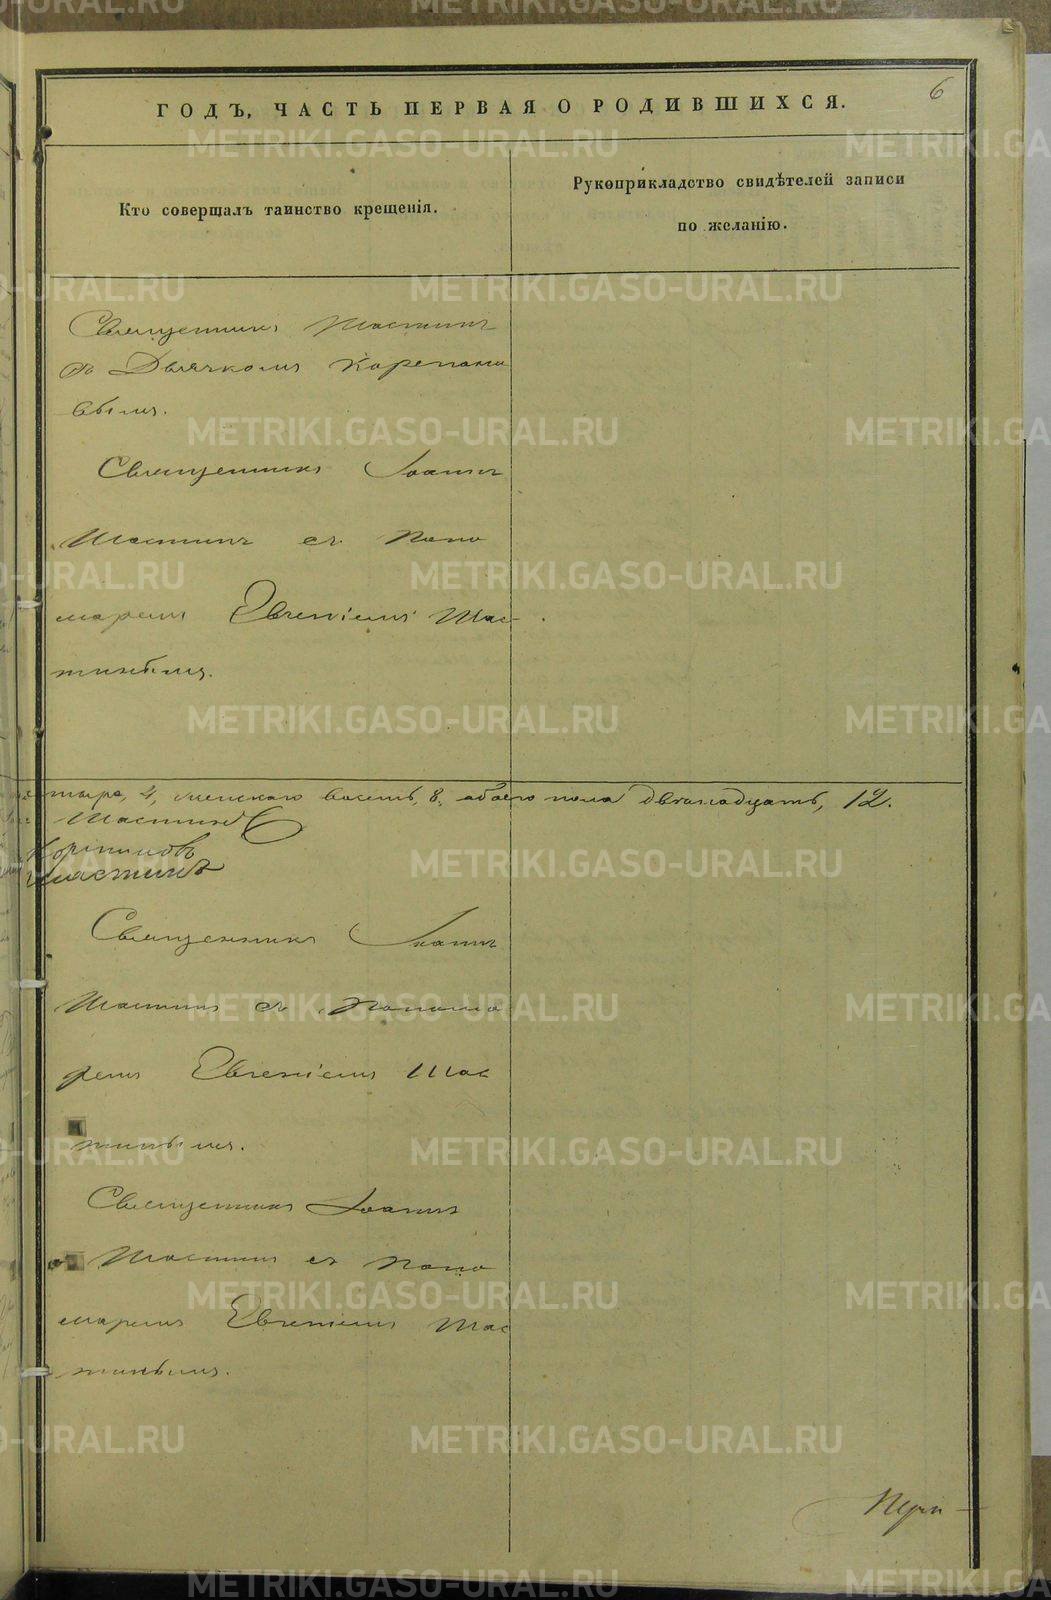 6
ГОДЪ, ЧАСТЬ ПЕРВАЯ О РОДИВШИХСЯ.
Кто совершалъ таинство крещенія.
Рукоприкладство свидѣтелей записи
по желанію.
Священникъ Шастинъ
съ Дьячкомъ Карепано
вымъ.
Священникъ Іоаннъ
Шастинъ съ Поно
маремъ Евгеніемъ Шас-
тинымъ.
тыре, 4, мужскаго восемь, 8, обоего пола двенадцать, 12.
Шастинъ
Шастинъ
Священникъ Іоаннъ
Шастинъ съ Понома
ремъ Евгеніемъ Шас
тинымъ.
Священникъ Іоаннъ
Шастинъ съ Поно
маремъ Евгеніемъ Шас
тинымъ.
METRIKI.GASO-URAL.RU